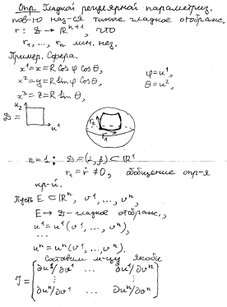 Опр. Гладкой регулярной параметриз.
пов-ю наз-ся такое гладкое отображ.
r: D → R^{n+1}, что
r_1, ..., r_n лин. нез.
Пример. Сфера.
x^1 = x = R cos φ cos θ, φ = u^1,
x^2 = y = R sin φ cos θ, θ = u^2,
x^3 = z = R sin θ,
D =
n = 1: D = (α, β) ⊂ R^1
r_1 = ṙ ≠ 0, обобщение опр-я
кр-й.
Пусть E ⊂ R^n, v^1, ..., v^n,
E → D – гладкое отображ.,
u^1 = u^1(v^1, ..., v^n),
...
u^n = u^n(v^1, ..., v^n).
Составим м-цу Якоби
J = (∂u^1/∂v^1 ... ∂u^1/∂v^n
... 
∂u^n/∂v^1 ... ∂u^n/∂v^n)